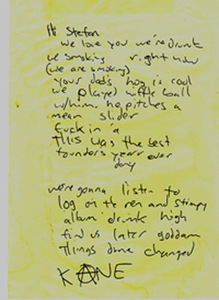 Hi Stefan
we love you we're drunk
we smoking right now
(we are smoking)
your dad's hog is cool
we played wiffle ball
w/him. he pitches a
mean slider
fuck in a
THIS was the best
founders years ever
day
we're gonna listen to
log on the ren and stimpy
album drunk high
find us later goddam
Things done changed
KANE